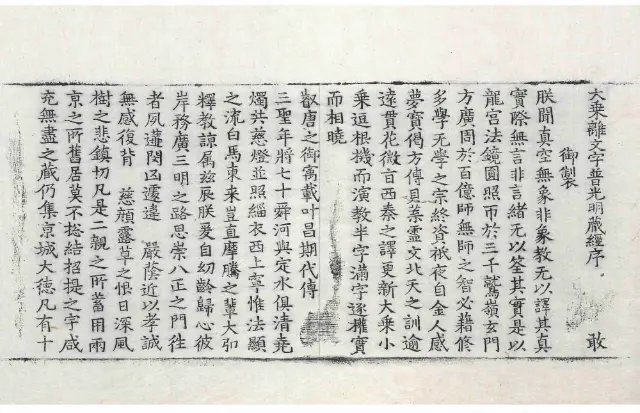 大乘離文字普光明藏經序 敢
御製
朕聞真空無象非象教无以譯其真
實際無言非言緒无以筌其實是以
龍宮法鏡圓照帀於三千鷲嶺玄門
方廣周於百億師無師之智必藉修
多學无學之宗終資祇夜自金人感
夢寶偈方傳貝葉靈文北天之訓逾
遠貫花微言西秦之譯更新大乘小
乘逗根機而演教半字滿字逐權實
而相曉
叡唐之御寓載叶昌期代傳
三聖年將七十舜河與定水俱清堯
燭共慈燈並照緇衣西上寧惟法顯
之流白馬東来豈直摩騰之輩大弘
釋教諒属兹辰朕爰自幼齡歸心彼
岸務廣三明之路思崇八正之門往
者夙遘閔凶遽違 嚴陰近以孝誠
無感復背 慈顔露草之恨日深風
樹之悲鎮切凡是二親之所蓄用兩
京之所舊居莫不捴結招提之宇咸
充無盡之藏仍集京城大德凡有十